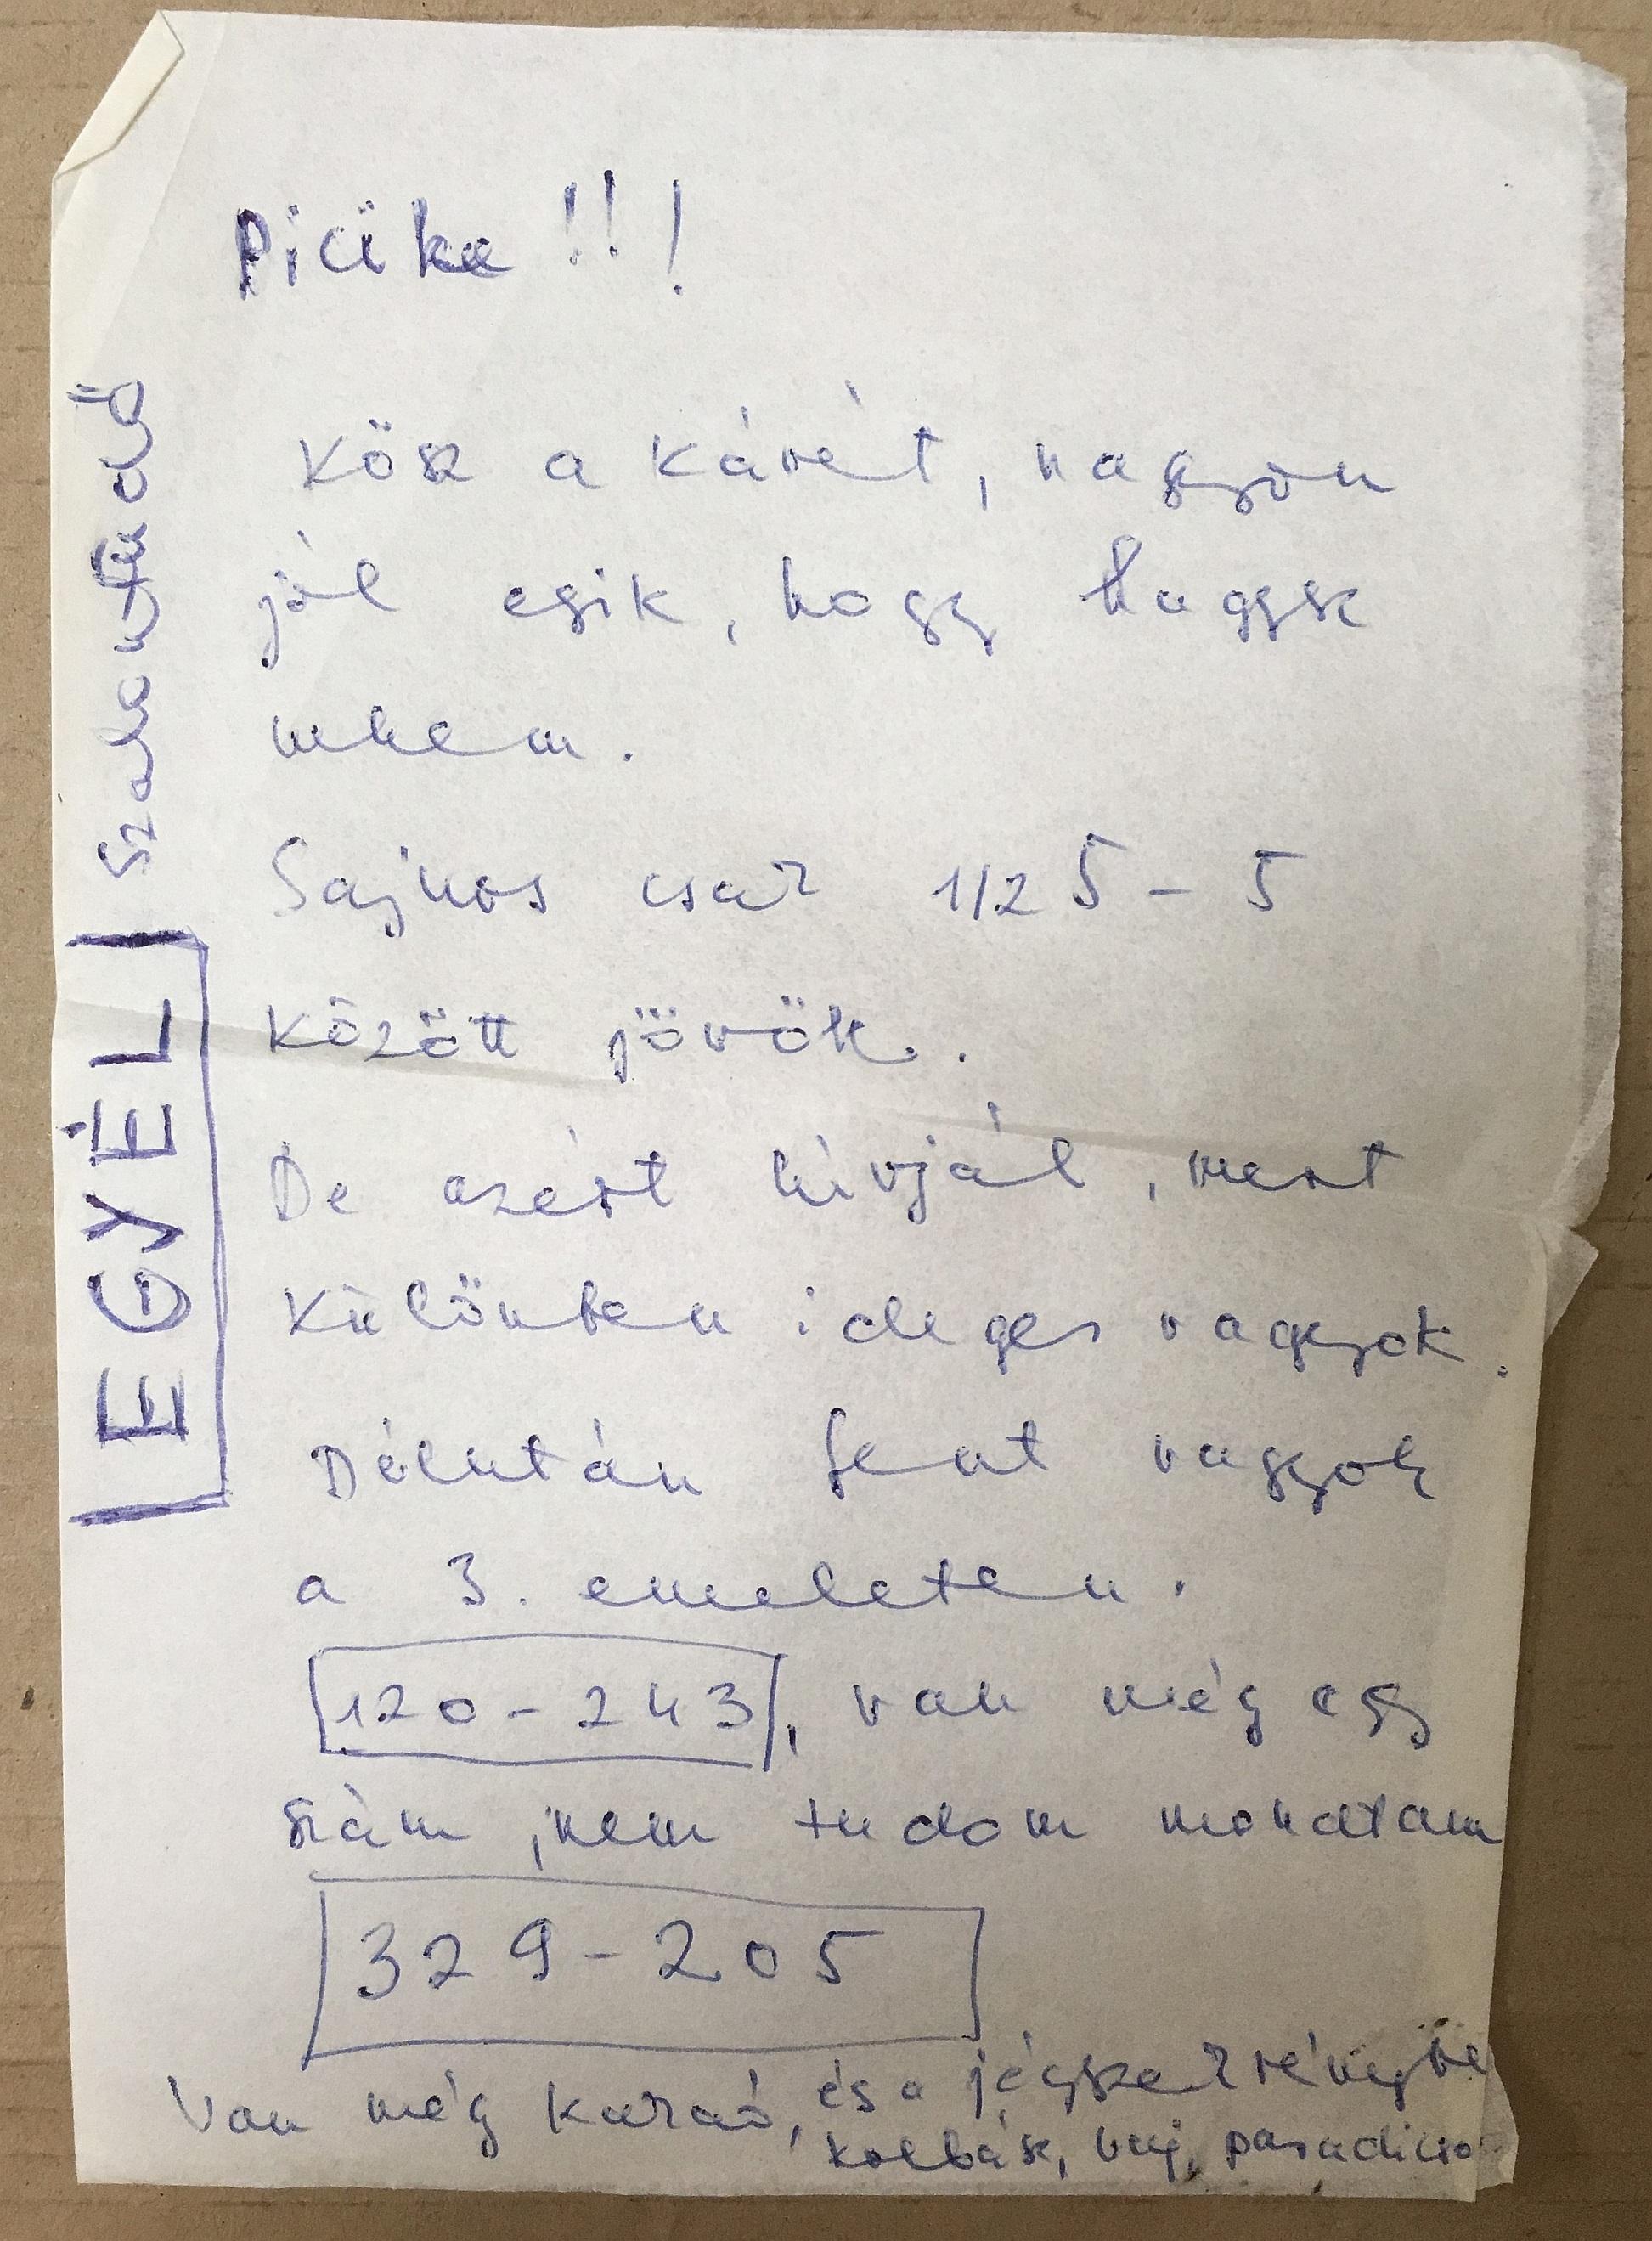 Picüke !!!
Kösz a kávét, nagyon
jól esik, hogy hagysz
nekem.
Sajnos csak 1/2 5 - 5
között jövök.
De azért hívjál, mert
különben ideges vagyok.
Délután fent vagyok
a 3. emeleten.
120-243, van még egy
szám, nem tudom mondtam
329-205
Van még karaó, és a jégszekrénybe
kolbász, vaj, paradicso
EGYÉL